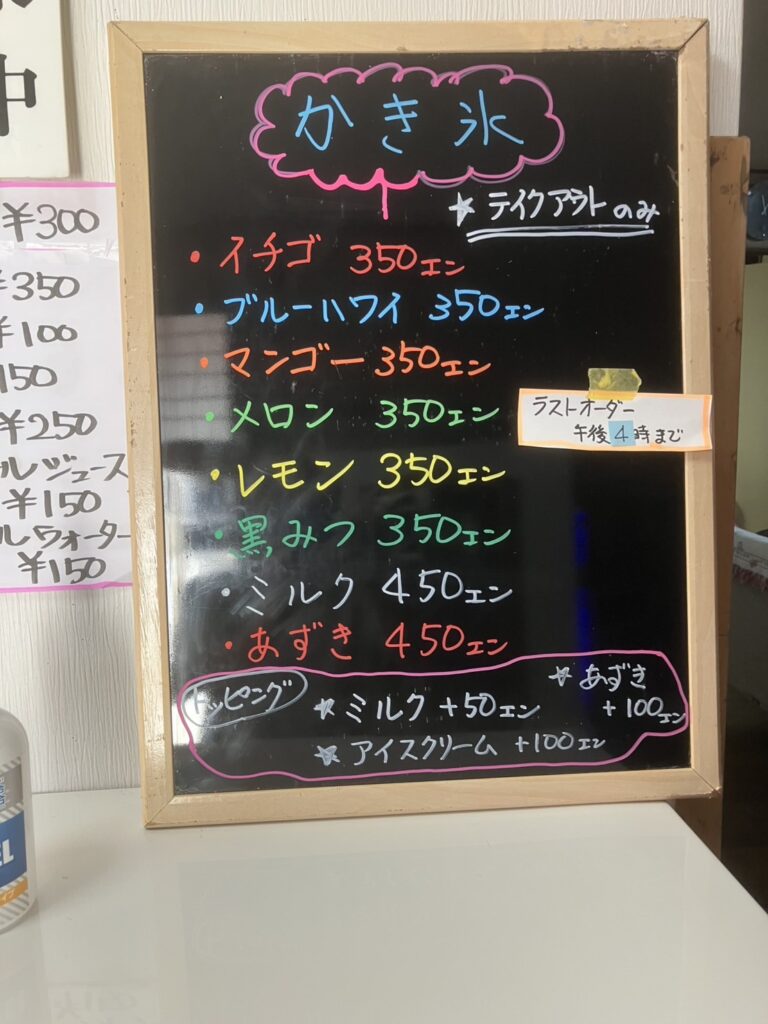 中
¥300
¥350
¥100
150
¥250
ルジュース
¥150
ルウォーター
¥150
かき氷
★ テイクアウトのみ
・イチゴ 350エン
・ブルーハワイ 350エン
・マンゴー 350エン
・メロン 350エン
・レモン 350エン
・黒みつ 350エン
・ミルク 450エン
・あずき 450エン
ラストオーダー
午後4時まで
トッピング
★ ミルク +50エン
★ あずき
+100エン
★ アイスクリーム +100エン
EL